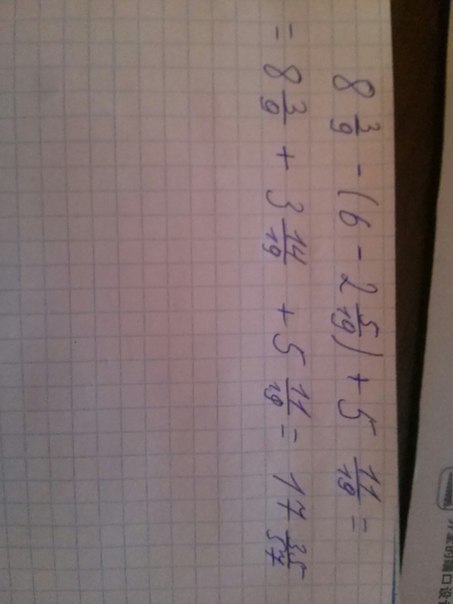 8 3/9 - (6 - 2 5/19) + 5 11/19 =
= 8 3/9 + 3 14/19 + 5 11/19 = 17 35/57